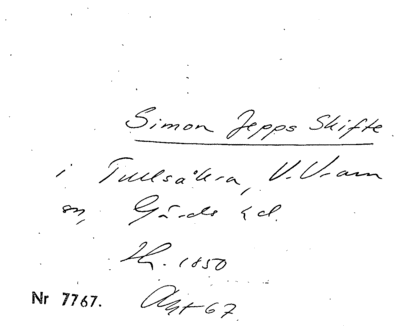 Simon Jepps Skifte
i Tullsåkra, V. Vram
sn, Gärds hd.
1850
Nr 7767. Akt 67